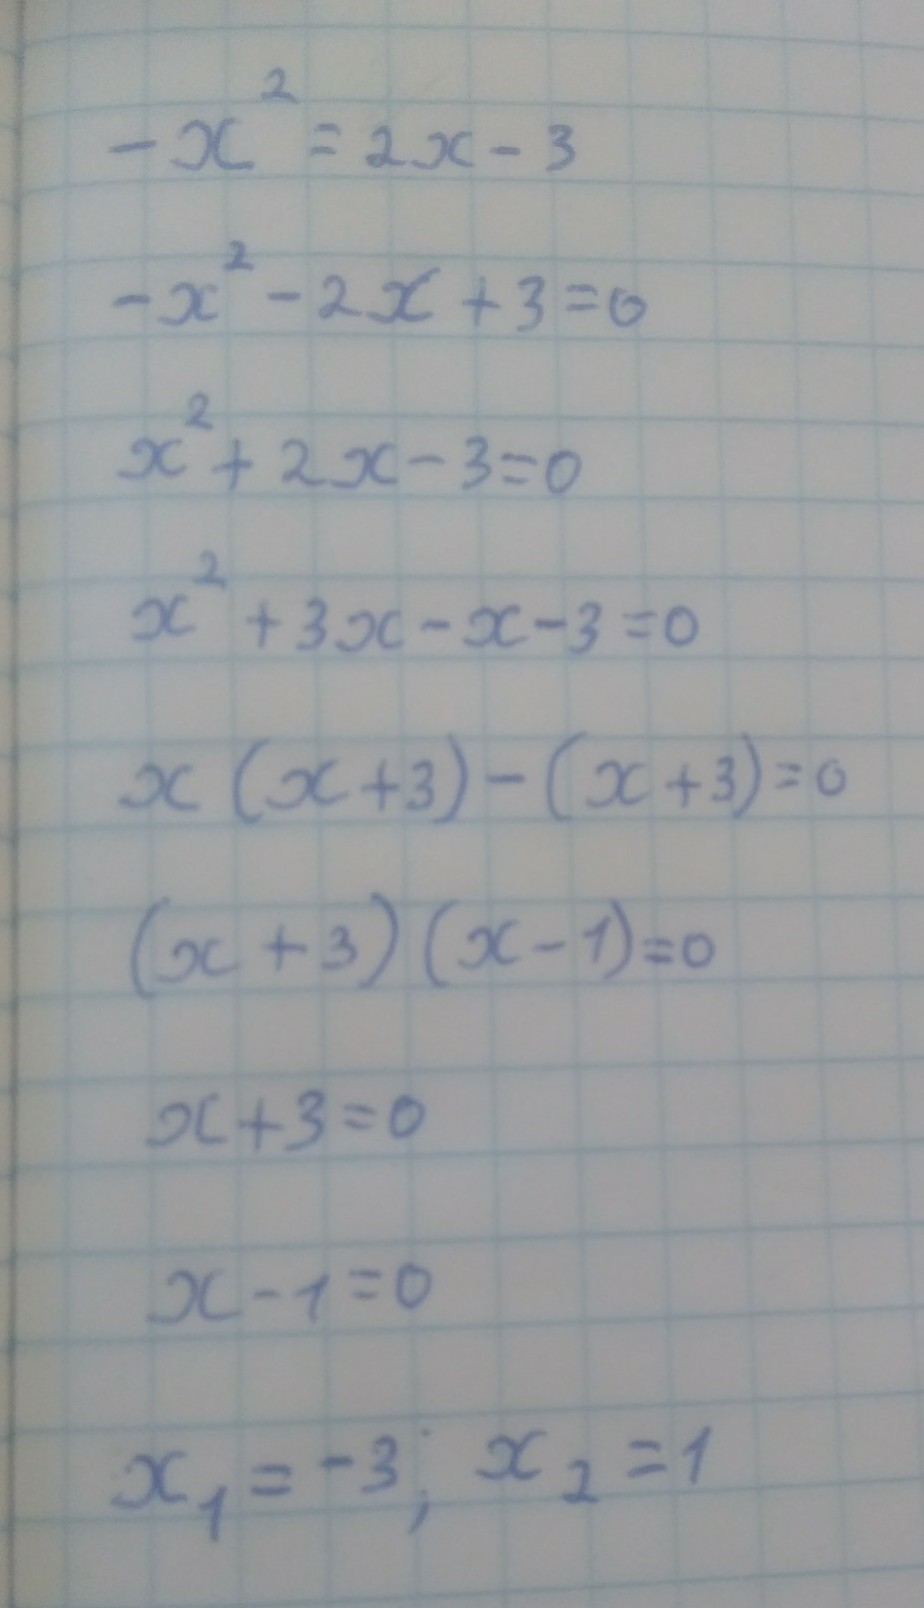 -x² = 2x - 3
-x² - 2x + 3 = 0
x² + 2x - 3 = 0
x² + 3x - x - 3 = 0
x (x + 3) - (x + 3) = 0
(x + 3) (x - 1) = 0
x + 3 = 0
x - 1 = 0
x₁ = -3; x₂ = 1